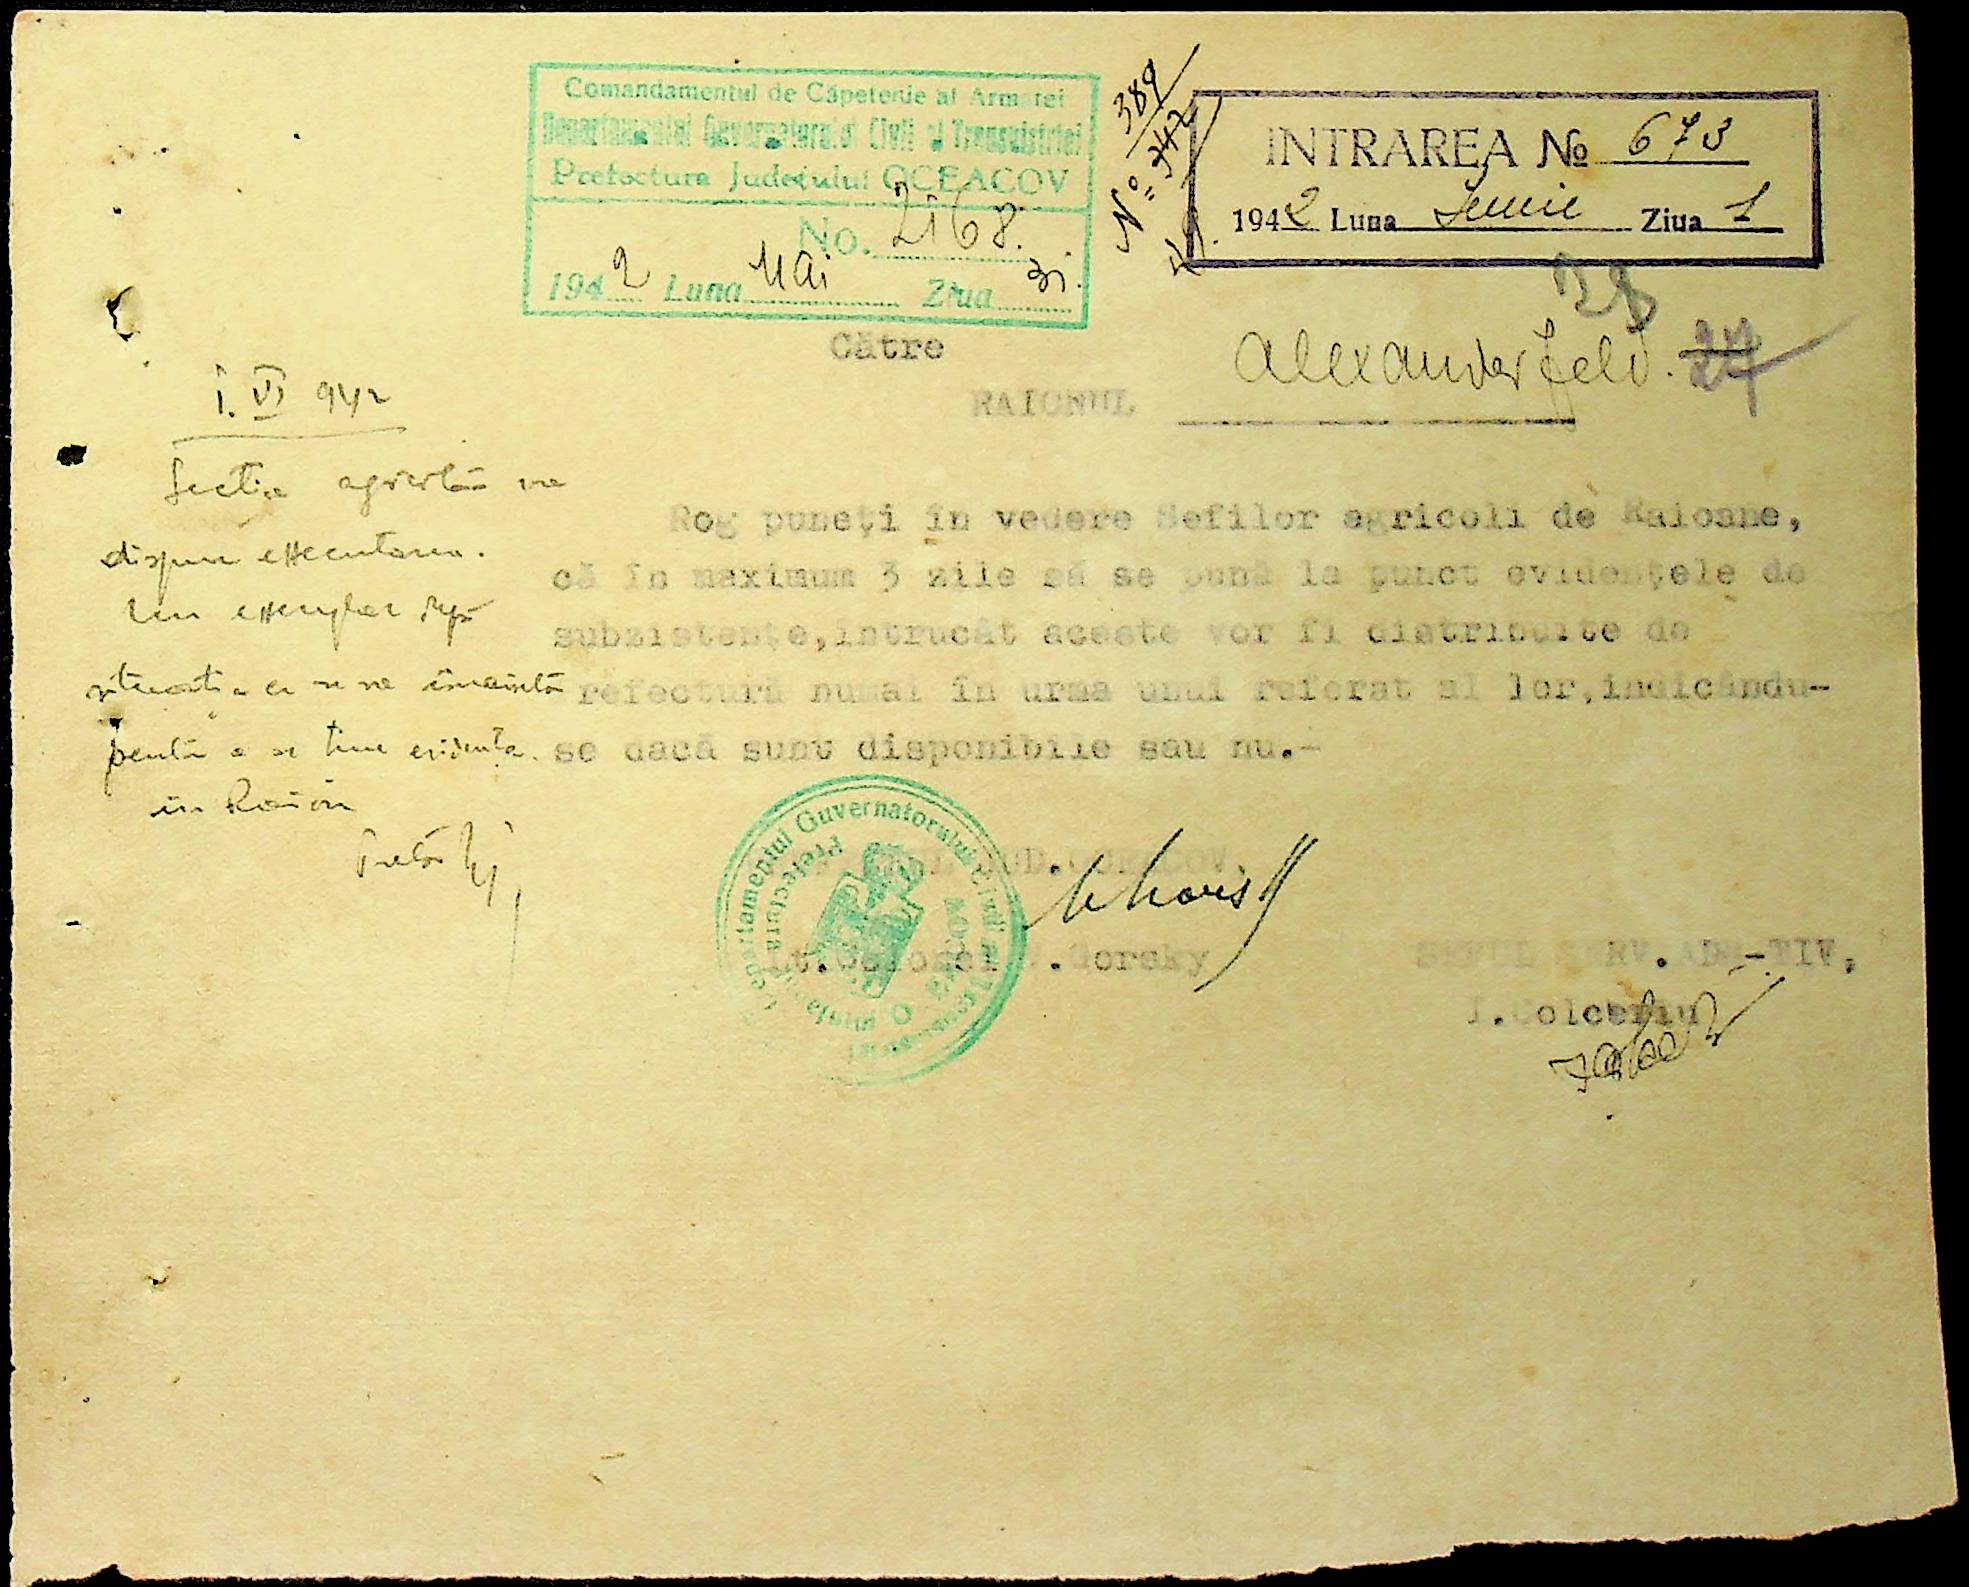 Comandamentul de Căpetenie al Armatei
Departamentul Guvernatorului Civil al Transnistriei
Prefectura Județului OCEACOV
No. 2168.
1942 Luna Mai Ziua 31.
No 347
389
INTRAREA No 673
1942 Luna Iunie Ziua 1
28
27
Către
RAIONUL Alexanderfeld.
I. VI 942
Secția agricolă va
dispune executarea.
Un exemplar după
situația ce se va înainta
pentru a se ține evidența
în Raion
Pretor
Rog puneți în vedere Sefilor agricoli de Raioane,
că în maximum 3 zile să se pună la punct evidențele de
subzistențe,întrucât aceste vor fi distribuite de
refectură numai în urma unui referat al lor,indicându-
se dacă sunt disponibile sau nu.-
JUD.OCEACOV,
Lt.Colonel .Gorsky
Departamentul Guvernatorului Civil al Transnistriei
Prefectura Județului Oceacov
SEFUL SERV.ADM-TIV,